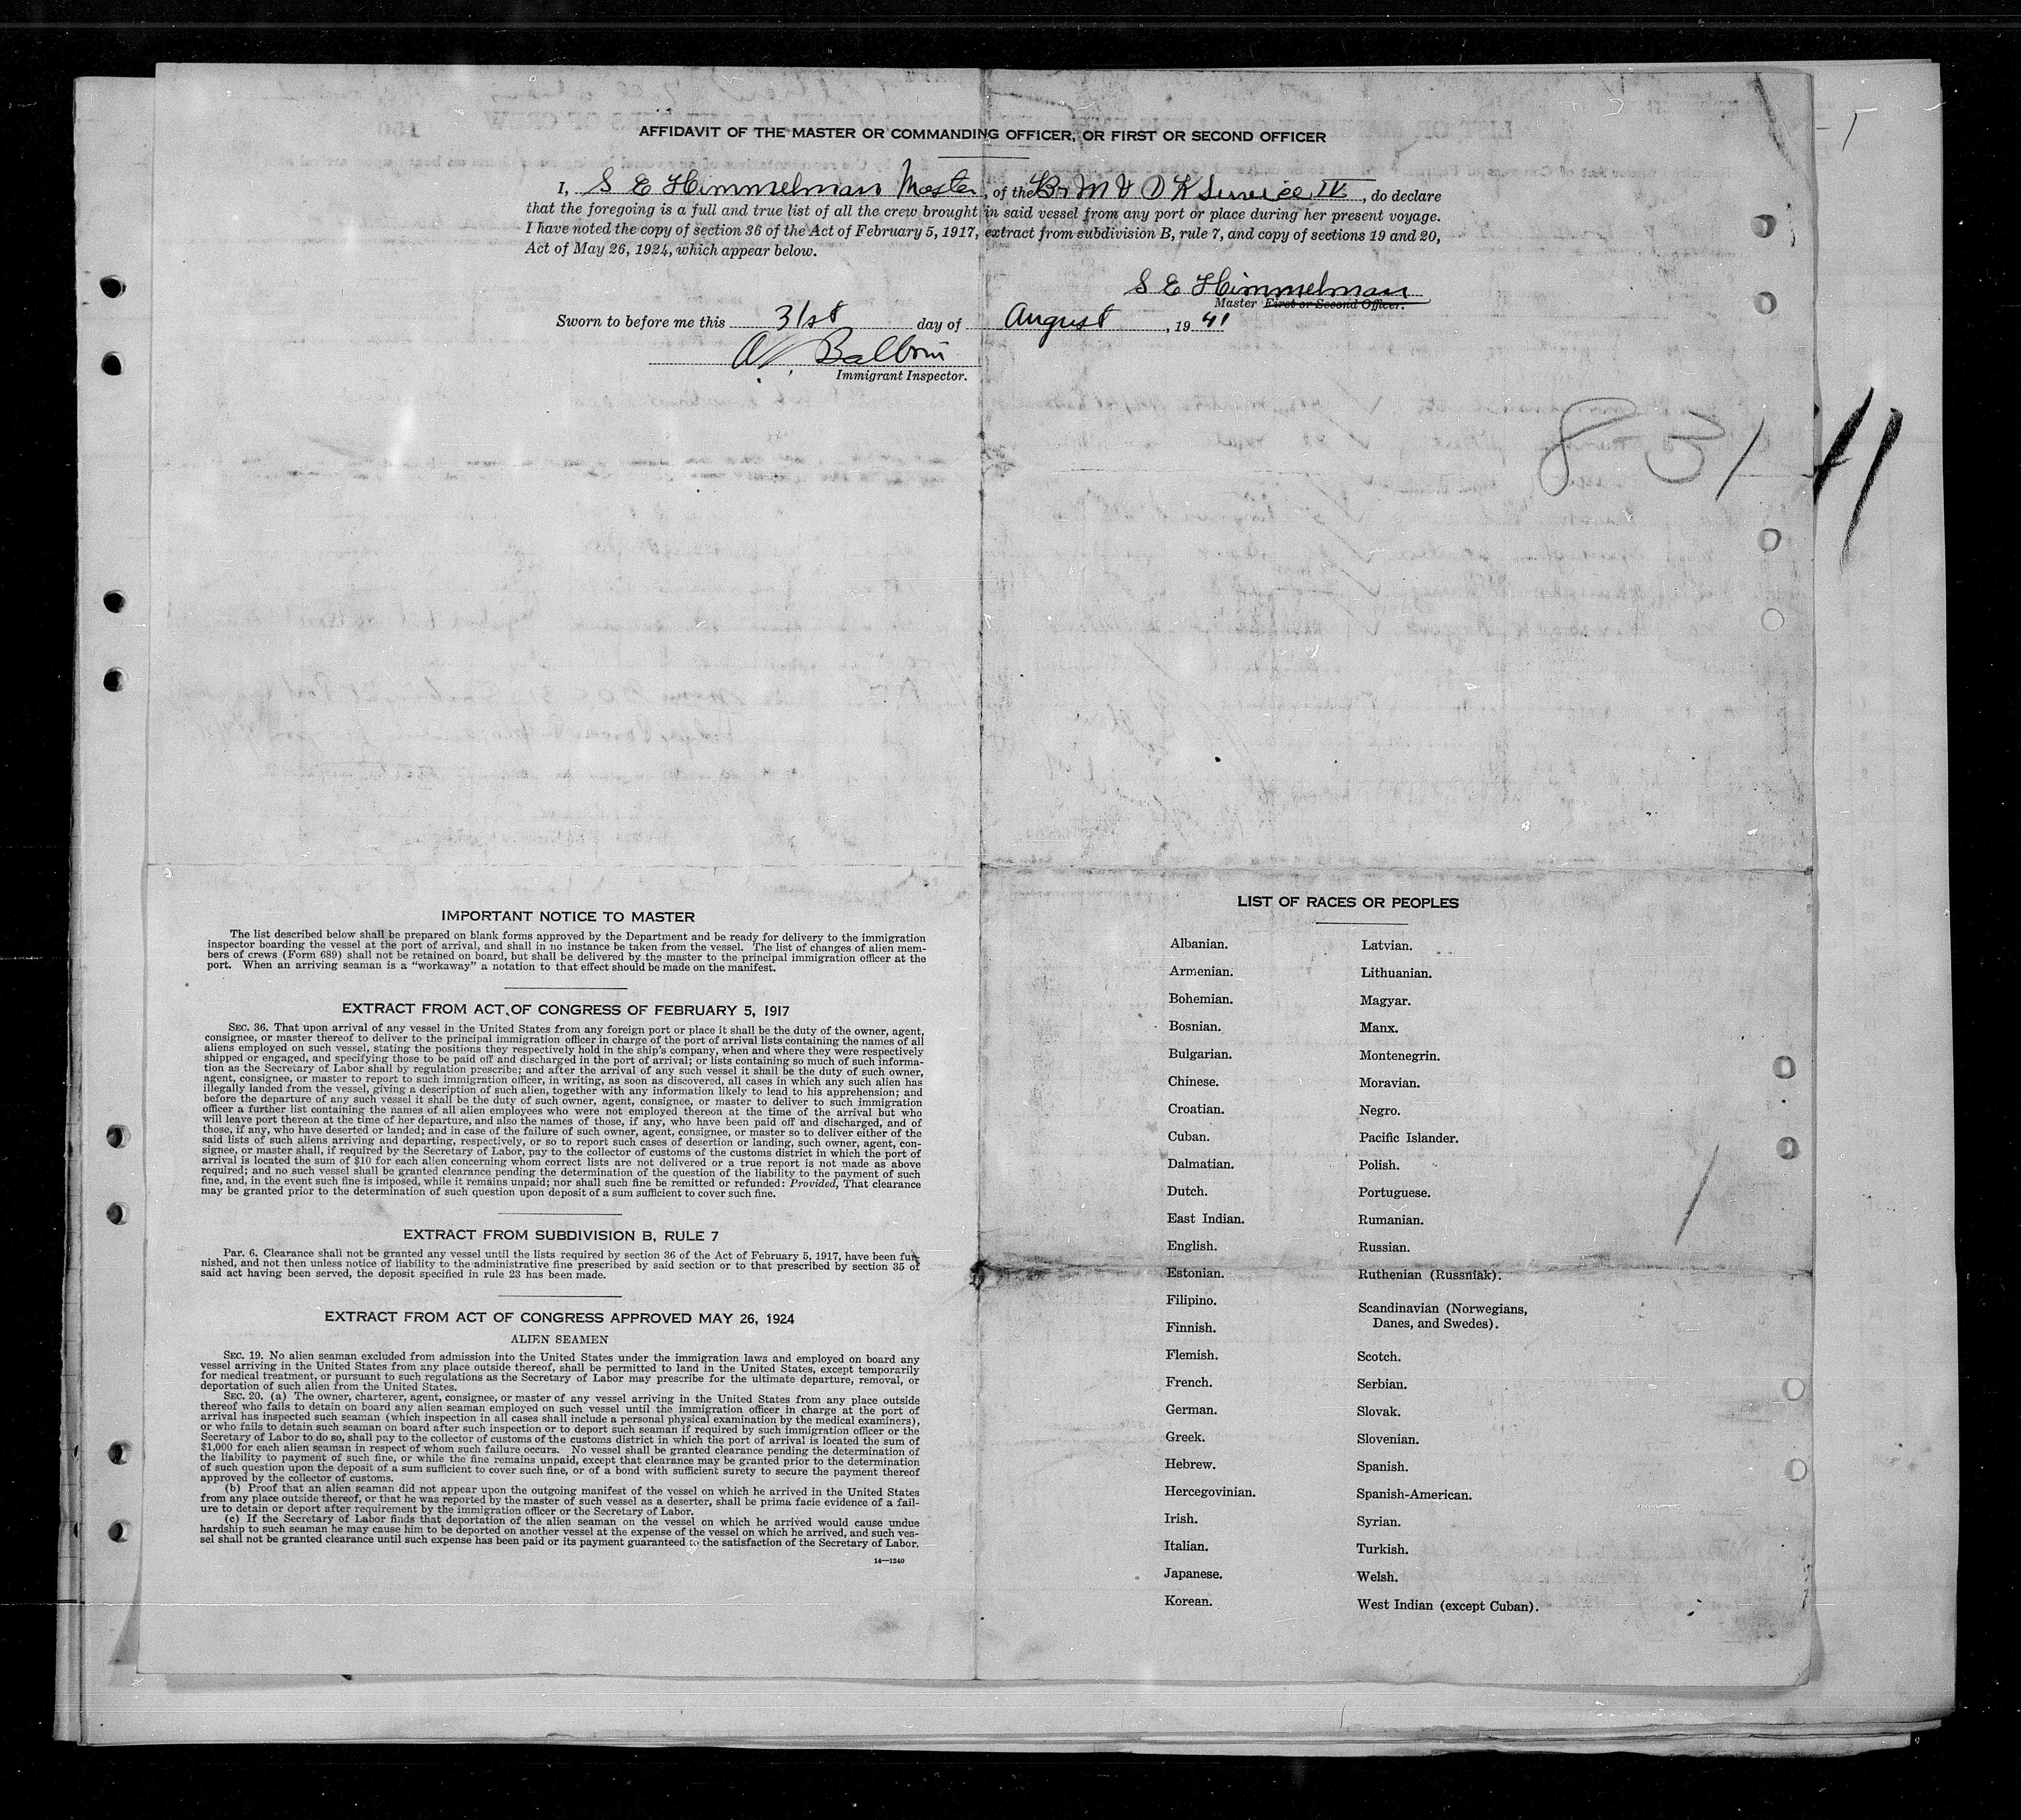 AFFIDAVIT OF THE MASTER OR COMMANDING OFFICER, OR FIRST OR SECOND OFFICER
I, S E Himmelman Master, of the Br M V O K Service IV, do declare
that the foregoing is a full and true list of all the crew brought in said vessel from any port or place during her present voyage.
I have noted the copy of section 36 of the Act of February 5, 1917, extract from subdivision B, rule 7, and copy of sections 19 and 20,
Act of May 26, 1924, which appear below.
S E Himmelman
Master First or Second Officer.
Sworn to before me this 31st day of August, 1941
Immigrant Inspector.
831
41
IMPORTANT NOTICE TO MASTER
The list described below shall be prepared on blank forms approved by the Department and be ready for delivery to the immigration
inspector boarding the vessel at the port of arrival, and shall in no instance be taken from the vessel. The list of changes of alien mem-
bers of crews (Form 689) shall not be retained on board, but shall be delivered by the master to the principal immigration officer at the
port. When an arriving seaman is a "workaway" a notation to that effect should be made on the manifest.
EXTRACT FROM ACT OF CONGRESS OF FEBRUARY 5, 1917
SEC. 36. That upon arrival of any vessel in the United States from any foreign port or place it shall be the duty of the owner, agent,
consignee, or master thereof to deliver to the principal immigration officer in charge of the port of arrival lists containing the names of all
aliens employed on such vessel, stating the positions they respectively hold in the ship's company, when and where they were respectively
shipped or engaged, and specifying those to be paid off and discharged in the port of arrival; or lists containing so much of such informa-
tion as the Secretary of Labor shall by regulation prescribe; and after the arrival of any such vessel it shall be the duty of such owner,
agent, consignee, or master to report to such immigration officer, in writing, as soon as discovered, all cases in which any such alien has
illegally landed from the vessel, giving a description of such alien, together with any information likely to lead to his apprehension; and
before the departure of any such vessel it shall be the duty of such owner, agent, consignee, or master to deliver to such immigration
officer a further list containing the names of all alien employees who were not employed thereon at the time of the arrival but who
will leave port thereon at the time of her departure, and also the names of those, if any, who have been paid off and discharged, and of
those, if any, who have deserted or landed; and in case of the failure of such owner, agent, consignee, or master so to deliver either of the
said lists of such aliens arriving and departing, respectively, or so to report such cases of desertion or landing, such owner, agent, con-
signee, or master shall, if required by the Secretary of Labor, pay to the collector of customs of the customs district in which the port of
arrival is located the sum of $10 for each alien concerning whom correct lists are not delivered or a true report is not made as above
required; and no such vessel shall be granted clearance pending the determination of the question of the liability to the payment of such
fine, and, in the event such fine is imposed, while it remains unpaid; nor shall such fine be remitted or refunded: Provided, That clearance
may be granted prior to the determination of such question upon deposit of a sum sufficient to cover such fine.
EXTRACT FROM SUBDIVISION B, RULE 7
Par. 6. Clearance shall not be granted any vessel until the lists required by section 36 of the Act of February 5, 1917, have been fur-
nished, and not then unless notice of liability to the administrative fine prescribed by said section or to that prescribed by section 35 of
said act having been served, the deposit specified in rule 23 has been made.
EXTRACT FROM ACT OF CONGRESS APPROVED MAY 26, 1924
ALIEN SEAMEN
SEC. 19. No alien seaman excluded from admission into the United States under the immigration laws and employed on board any
vessel arriving in the United States from any place outside thereof, shall be permitted to land in the United States, except temporarily
for medical treatment, or pursuant to such regulations as the Secretary of Labor may prescribe for the ultimate departure, removal, or
deportation of such alien from the United States.
SEC. 20. (a) The owner, charterer, agent, consignee, or master of any vessel arriving in the United States from any place outside
thereof who fails to detain on board any alien seaman employed on such vessel until the immigration officer in charge at the port of
arrival has inspected such seaman (which inspection in all cases shall include a personal physical examination by the medical examiners),
or who fails to detain such seaman on board after such inspection or to deport such seaman if required by such immigration officer or the
Secretary of Labor to do so, shall pay to the collector of customs of the customs district in which the port of arrival is located the sum of
$1,000 for each alien seaman in respect of whom such failure occurs. No vessel shall be granted clearance pending the determination of
the liability to payment of such fine, or while the fine remains unpaid, except that clearance may be granted prior to the determination
of such question upon the deposit of a sum sufficient to cover such fine, or of a bond with sufficient surety to secure the payment thereof
approved by the collector of customs.
(b) Proof that an alien seaman did not appear upon the outgoing manifest of the vessel on which he arrived in the United States
from any place outside thereof, or that he was reported by the master of such vessel as a deserter, shall be prima facie evidence of a fail-
ure to detain or deport after requirement by the immigration officer or the Secretary of Labor.
(c) If the Secretary of Labor finds that deportation of the alien seaman on the vessel on which he arrived would cause undue
hardship to such seaman he may cause him to be deported on another vessel at the expense of the vessel on which he arrived, and such ves-
sel shall not be granted clearance until such expense has been paid or its payment guaranteed to the satisfaction of the Secretary of Labor.
14—1240
LIST OF RACES OR PEOPLES
Albanian.
Armenian.
Bohemian.
Bosnian.
Bulgarian.
Chinese.
Croatian.
Cuban.
Dalmatian.
Dutch.
East Indian.
English.
Estonian.
Filipino.
Finnish.
Flemish.
French.
German.
Greek.
Hebrew.
Hercegovinian.
Irish.
Italian.
Japanese.
Korean.
Latvian.
Lithuanian.
Magyar.
Manx.
Montenegrin.
Moravian.
Negro.
Pacific Islander.
Polish.
Portuguese.
Rumanian.
Russian.
Ruthenian (Russniak).
Scandinavian (Norwegians,
Danes, and Swedes).
Scotch.
Serbian.
Slovak.
Slovenian.
Spanish.
Spanish-American.
Syrian.
Turkish.
Welsh.
West Indian (except Cuban).